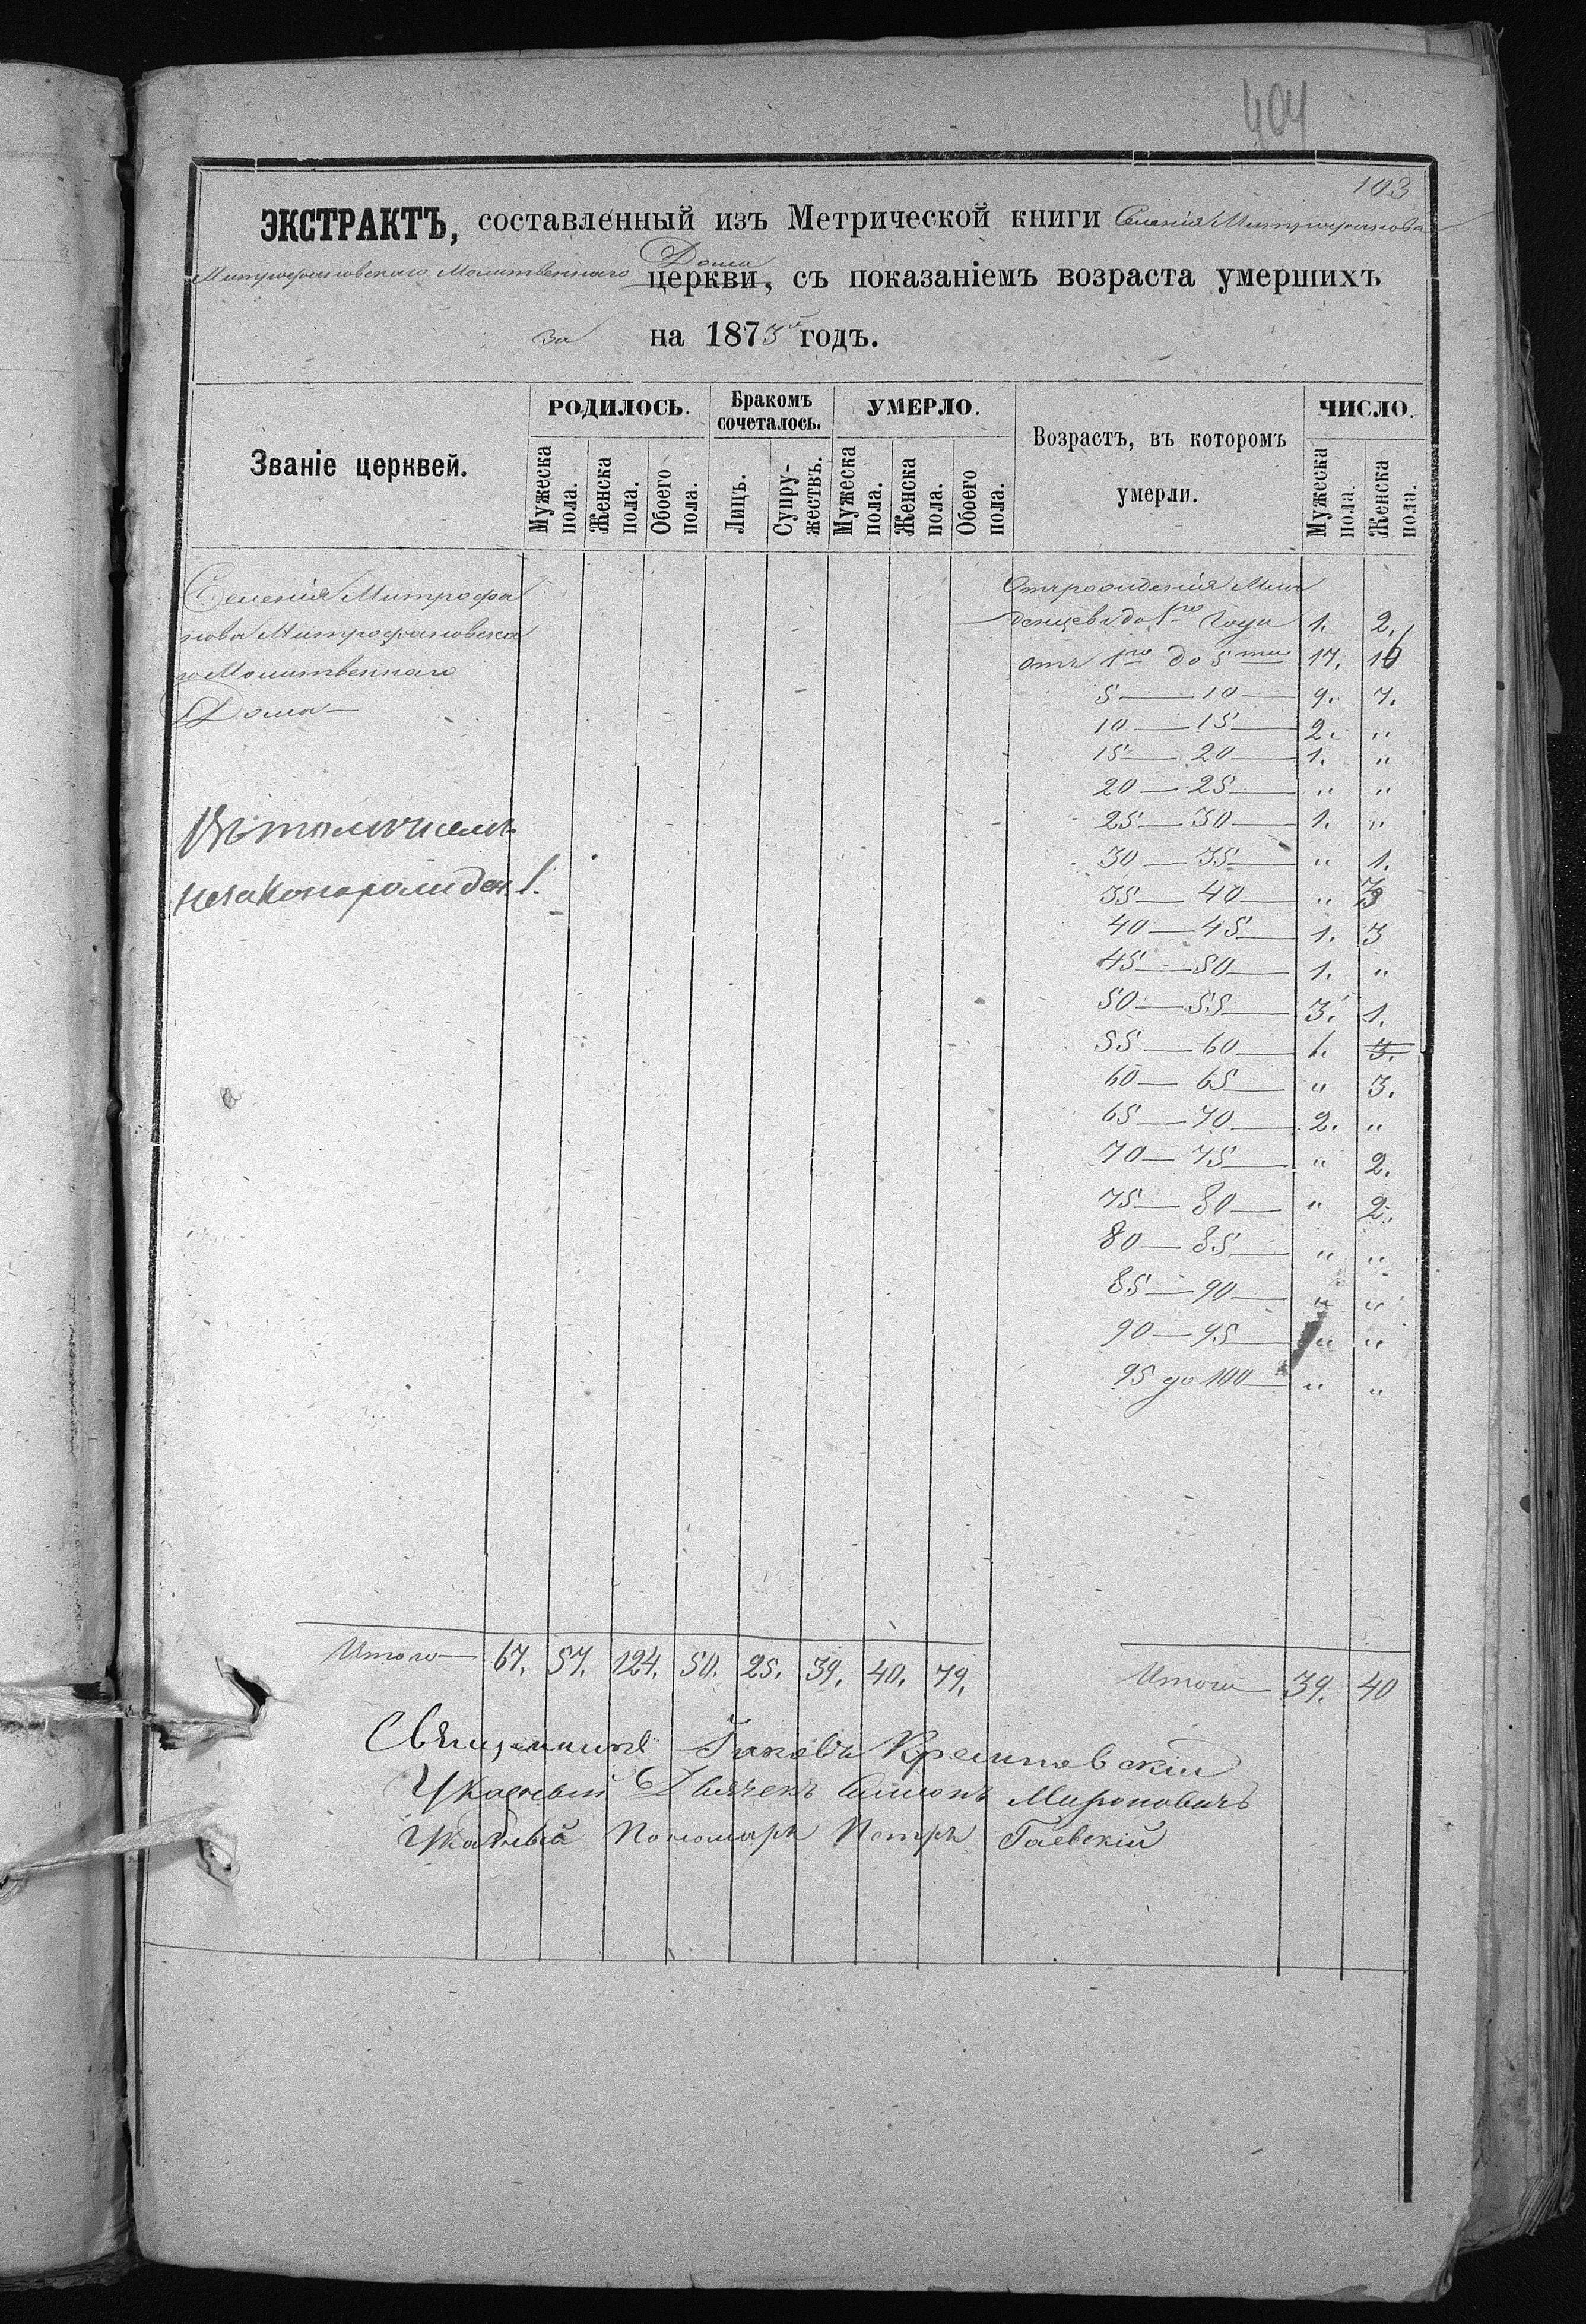 404
103
ЭКСТРАКТЪ, составленный изъ Метрической книги Селенія Митрофанова
Митрофановскаго Молитвеннаго Дома церкви, съ показаніемъ возраста умершихъ
за на 1873й годъ.
Званіе церквей.
РОДИЛОСЬ.
Бракомъ сочеталось.
УМЕРЛО.
Возрастъ, въ которомъ умерли.
ЧИСЛО.
Мужеска пола.
Женска пола.
Обоего пола.
Лицъ.
Супружествъ.
Мужеска пола.
Женска пола.
Обоего пола.
Мужеска пола.
Женска пола.
Селенія Митрофа
нова Митрофановска
го Молитвеннаго
Дома
Въ томъ числѣ
незаконорожден. 1.
Отъ рожденія Мла
денцевъ до 1го года 1. 2.
отъ 1го до 5ти 17. 16
5 — 10 — 9. 7.
10 — 15 — 2. "
15 — 20 — 1. "
20 — 25 — " "
25 — 30 — 1. "
30 — 35 — " 1.
35 — 40 — " 3
40 — 45 — 1. 3
45 — 50 — 1. "
50 — 55 — 3. 1.
55 — 60 — 1. 3.
60 — 65 — " 3.
65 — 70 — 2. "
70 — 75 — " 2.
75 — 80 — " 2.
80 — 85 — " "
85 — 90 — " "
90 — 95 — " "
95 до 100 — " "
Итого — 67. 57. 124. 50. 25. 39. 40. 79.
Итого 39. 40
Священникъ Іаковъ Креминскій
Указный Дьячекъ Симонъ Мироновичъ
Указный Пономарь Петръ Гаевскій